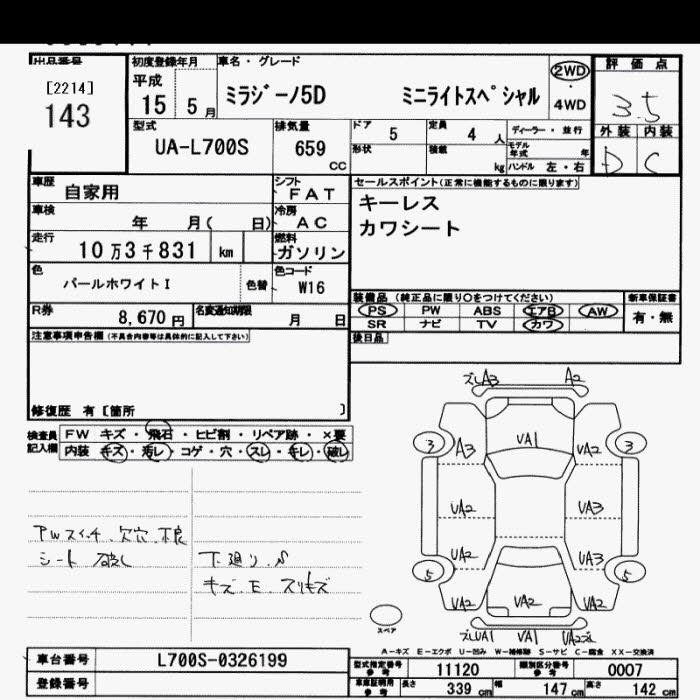 出品番号
[2214]
143
初度登録年月
平成
15 5月
車名・グレード
ミラジーノ5D ミニライトスペシャル
2WD
・
4WD
評価点
3.5
外装 内装
D C
型式
UA-L700S
排気量
659
CC
ドア 5
定員 4 人
ディーラー・並行
形状
積載 kg
モデル年式 年
ハンドル 左・右
車歴
自家用
シフト
FAT
車検
年 月( 日)
冷房
AC
走行
10万3千831 km
燃料
ガソリン
色
パールホワイトI
色替
色コード
W16
R券
8,670円
名変通知期限
月 日
セールスポイント(正常に機能するものに限ります)
キーレス
カワシート
装備品(純正品に限り○をつけてください)
新車保証書
PS PW ABS エアB AW
有・無
SR ナビ TV カワ
後日品
注意事項申告欄(不具合内容等は具体的に記入して下さい)
修復歴 有[箇所 ]
検査員記入欄
FW キズ・飛石・ヒビ割・リペア跡・×要
内装 キズ・汚レ・コゲ・穴・スレ・キレ・破レ
PWスイッチ 欠穴 不良
シート 破レ
下廻り S
キズ E スリキズ
ズレA3 A2
3 A3 VA1 VA2 3
VA2 VA3
VA2 VA3
5 5
VA2 VA2 VA2
ズレVA1 VA1 VA2ズレ
スペア
A-キズ E-エクボ U-凹み W-補修跡 S-サビ C-腐食 XX-交換済
車台番号
L700S-0326199
登録番号
型式指定番号
参考
11120
類別区分番号
参考
0007
車庫証明用
参考
長さ 339 cm
幅 147 cm
高さ 142 cm